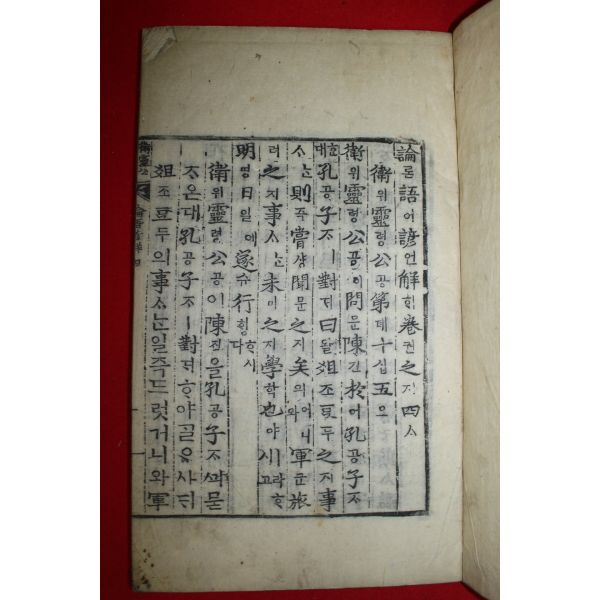 論론語어諺언解ᄒᆡ卷권之지四ᄉᆞ
衛위靈령公공第뎨十십五오
衛위靈령公공이問문陳진於어孔공子ᄌᆞ
ᄒᆞᆫ대孔공子ᄌᆞㅣ對ᄃᆡ曰왈俎조豆두之지事
ᄉᆞᄂᆞᆫ則즉嘗샹聞문之지矣의어니와軍군旅
려之지事ᄉᆞᄂᆞᆫ未미之지學학也야ㅣ라ᄒᆞ시고
明명日일에遂슈行ᄒᆡᆼᄒᆞ시다
衛위靈령公공이陳진을孔공子ᄌᆞᄭᅴ묻
ᄌᆞ온대孔공子ᄌᆞㅣ對ᄃᆡᄒᆞ야ᄀᆞᆯᄋᆞ샤ᄃᆡ
俎조豆두의事ᄉᆞᄂᆞᆫ일즉드럿거니와軍
衛靈公